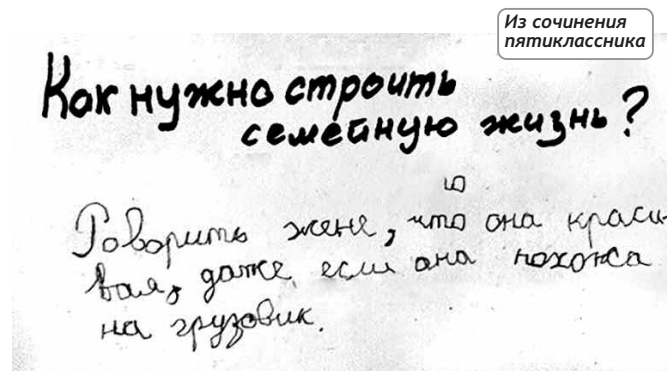 Из сочинения
пятиклассника
Как нужно строить
семейную жизнь?
Говорить жене, что она краси-
вая, даже если она похожа
на грузовик.